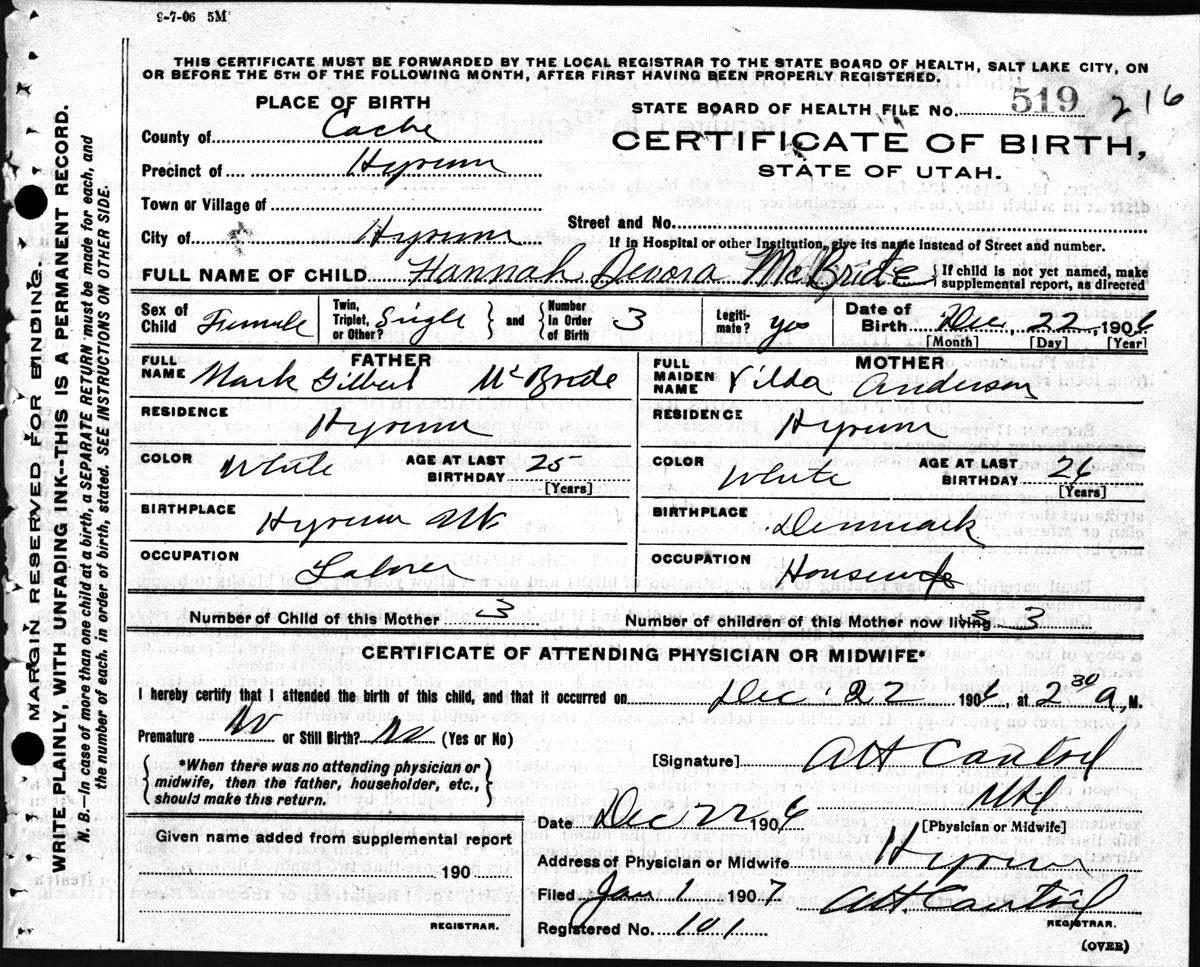 9-7-06 5M
THIS CERTIFICATE MUST BE FORWARDED BY THE LOCAL REGISTRAR TO THE STATE BOARD OF HEALTH, SALT LAKE CITY, ON
OR BEFORE THE 5TH OF THE FOLLOWING MONTH, AFTER FIRST HAVING BEEN PROPERLY REGISTERED.
PLACE OF BIRTH
STATE BOARD OF HEALTH FILE No. 519 216
County of Cache
CERTIFICATE OF BIRTH,
Precinct of Hyrum
STATE OF UTAH.
Town or Village of
Street and No.
City of Hyrum
If in Hospital or other Institution, give its name instead of Street and number.
FULL NAME OF CHILD Hannah Devora McBride { If child is not yet named, make
supplemental report, as directed
Sex of Child Female Twin, Triplet, or Other? Single } and { Number In Order of Birth 3 Legiti-mate? yes Date of Birth Dec 22 1906
[Month] [Day] [Year]
FATHER MOTHER
FULL NAME Mark Gilbert McBride FULL MAIDEN NAME Vilda Anderson
RESIDENCE Hyrum RESIDENCE Hyrum
COLOR White AGE AT LAST BIRTHDAY 25 [Years] COLOR White AGE AT LAST BIRTHDAY 26 [Years]
BIRTHPLACE Hyrum Ut. BIRTHPLACE Denmark
OCCUPATION Laborer OCCUPATION Housewife
Number of Child of this Mother 3 Number of children of this Mother now living 3
CERTIFICATE OF ATTENDING PHYSICIAN OR MIDWIFE*
I hereby certify that I attended the birth of this child, and that it occurred on Dec 22 1906, at 2 30 a, M.
Premature No or Still Birth? No (Yes or No)
{ *When there was no attending physician or
midwife, then the father, householder, etc.,
should make this return. }
[Signature]
MD
Date Dec 22 1906
[Physician or Midwife]
Given name added from supplemental report
190
Address of Physician or Midwife Hyrum
Filed Jan 1 1907
REGISTRAR.
Registered No. 101
REGISTRAR.
(OVER)
MARGIN RESERVED FOR BINDING.
WRITE PLAINLY, WITH UNFADING INK--THIS IS A PERMANENT RECORD.
N. B.—In case of more than one child at a birth, a SEPARATE RETURN must be made for each, and
the number of each, in order of birth, stated. SEE INSTRUCTIONS ON OTHER SIDE.